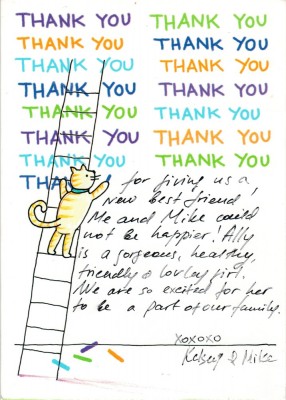 THANK YOU THANK YOU
THANK YOU THANK YOU
THANK YOU THANK YOU
THANK YOU THANK YOU
THANK YOU THANK YOU
THANK YOU THANK YOU
THANK YOU THANK YOU
THA THANK YOU
for giving us a
new best friend!
Me and Mike could
not be happier! Ally
is a gorgeous, healthy,
friendly & loving girl.
We are so excited for her
to be a part of our family.
XOXOXO
Kelsey & Mike